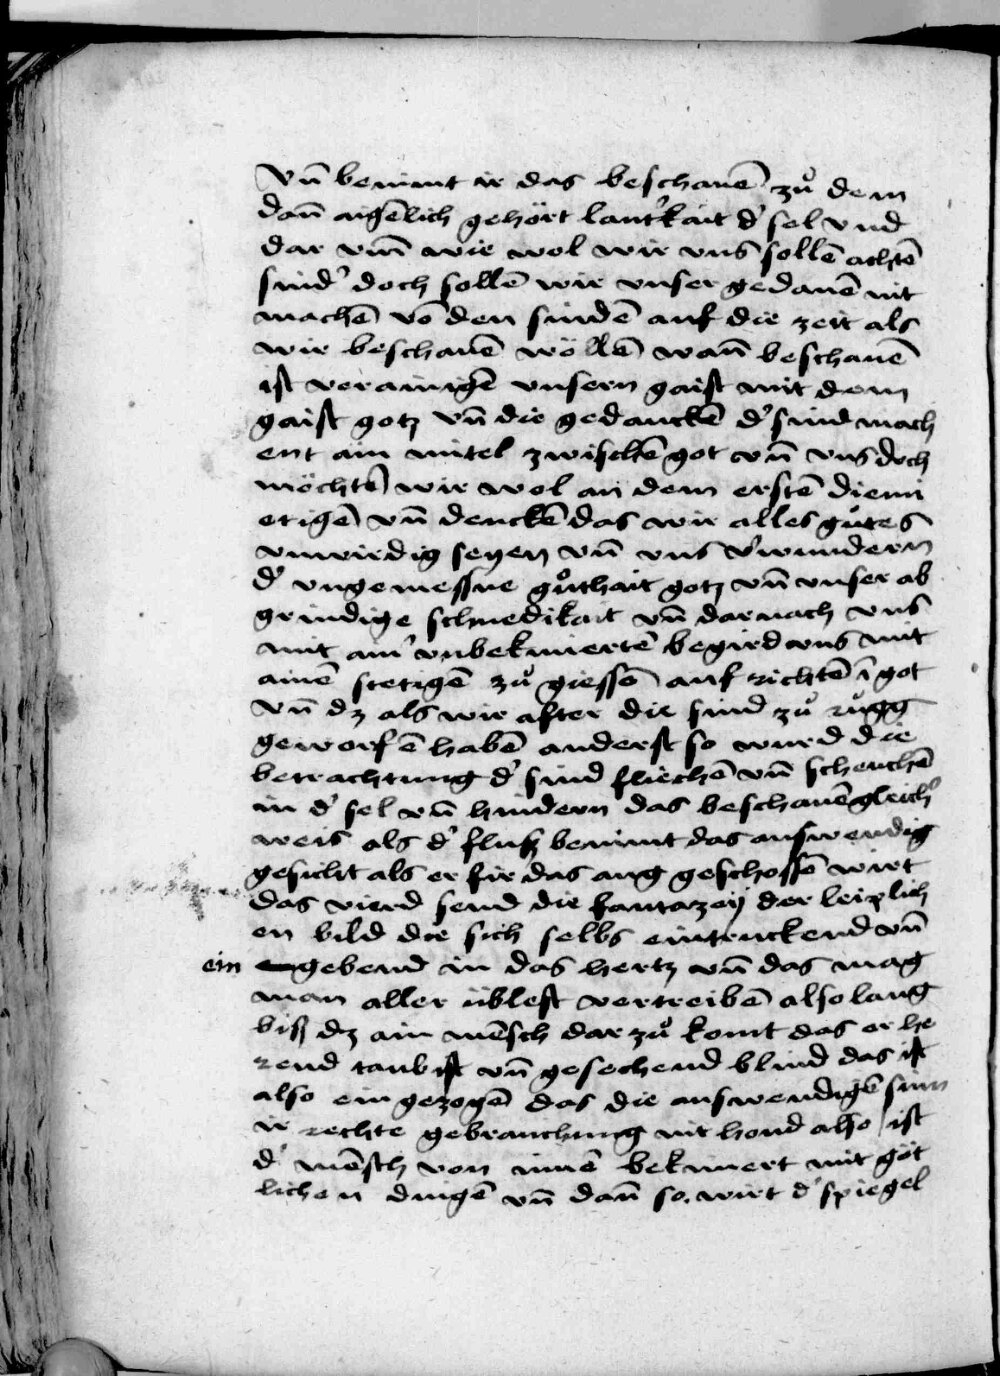 Vn̄ benimt ir das beschauē zů dem
dan̄ aigēlich gehört laut'kait d' sel vnd
dar vm̄ wie wol wir vns sollē achtē
sind' doch sollē wir vnser gedancken nit
machē vō den sindē auf die zeit als
wir beschauē wöllē wan̄ beschauē
ist verainigē vnsern gaist mit dem
gaist gotz vn̄ die gedanckē d' sind mach
ent ain mitel zwischē got vn̄ vns doch
möchtē wir wol an dem erstē diemi
etigē vn̄ denckē das wir alles gůtes
vnwirdig seyen vn̄ vns v'wundern
d' vngemessne gůthait gotz vn̄ vnser ab
grindige schnedikait vn̄ darnach vns
mit ain' vnbekimertē begird vns mit
ainē stetigē zů giessē auf richtē ī got
vn̄ dz als wir after die sind zů růgg
geworfē habē anderst so wurd die
betrachtung d' sind fliechē vn̄ scheuchē
in d' sel vn̄ hindern das beschauē gleich'
weis als d' fluß benimt das auswendig
gesicht als er fir das aug geschossē wirt
das vierd send die fantazey der leiplich
en bild die sich selbs eintruckend vn̄
ein gebend in das hertz vn̄ das mag
man aller üblest vertreibē also lang
biß dz ain mēsch dar zů komt das er he
rend taub ist vn̄ gesechend blind das ist
also ein gezogē das die auswendigē sinn
ir rechte gebrauchung nit hond also ist
d' mēsch von innē bekimert mit göt
lichen dingē vn̄ dan̄ so wirt d' spiegel